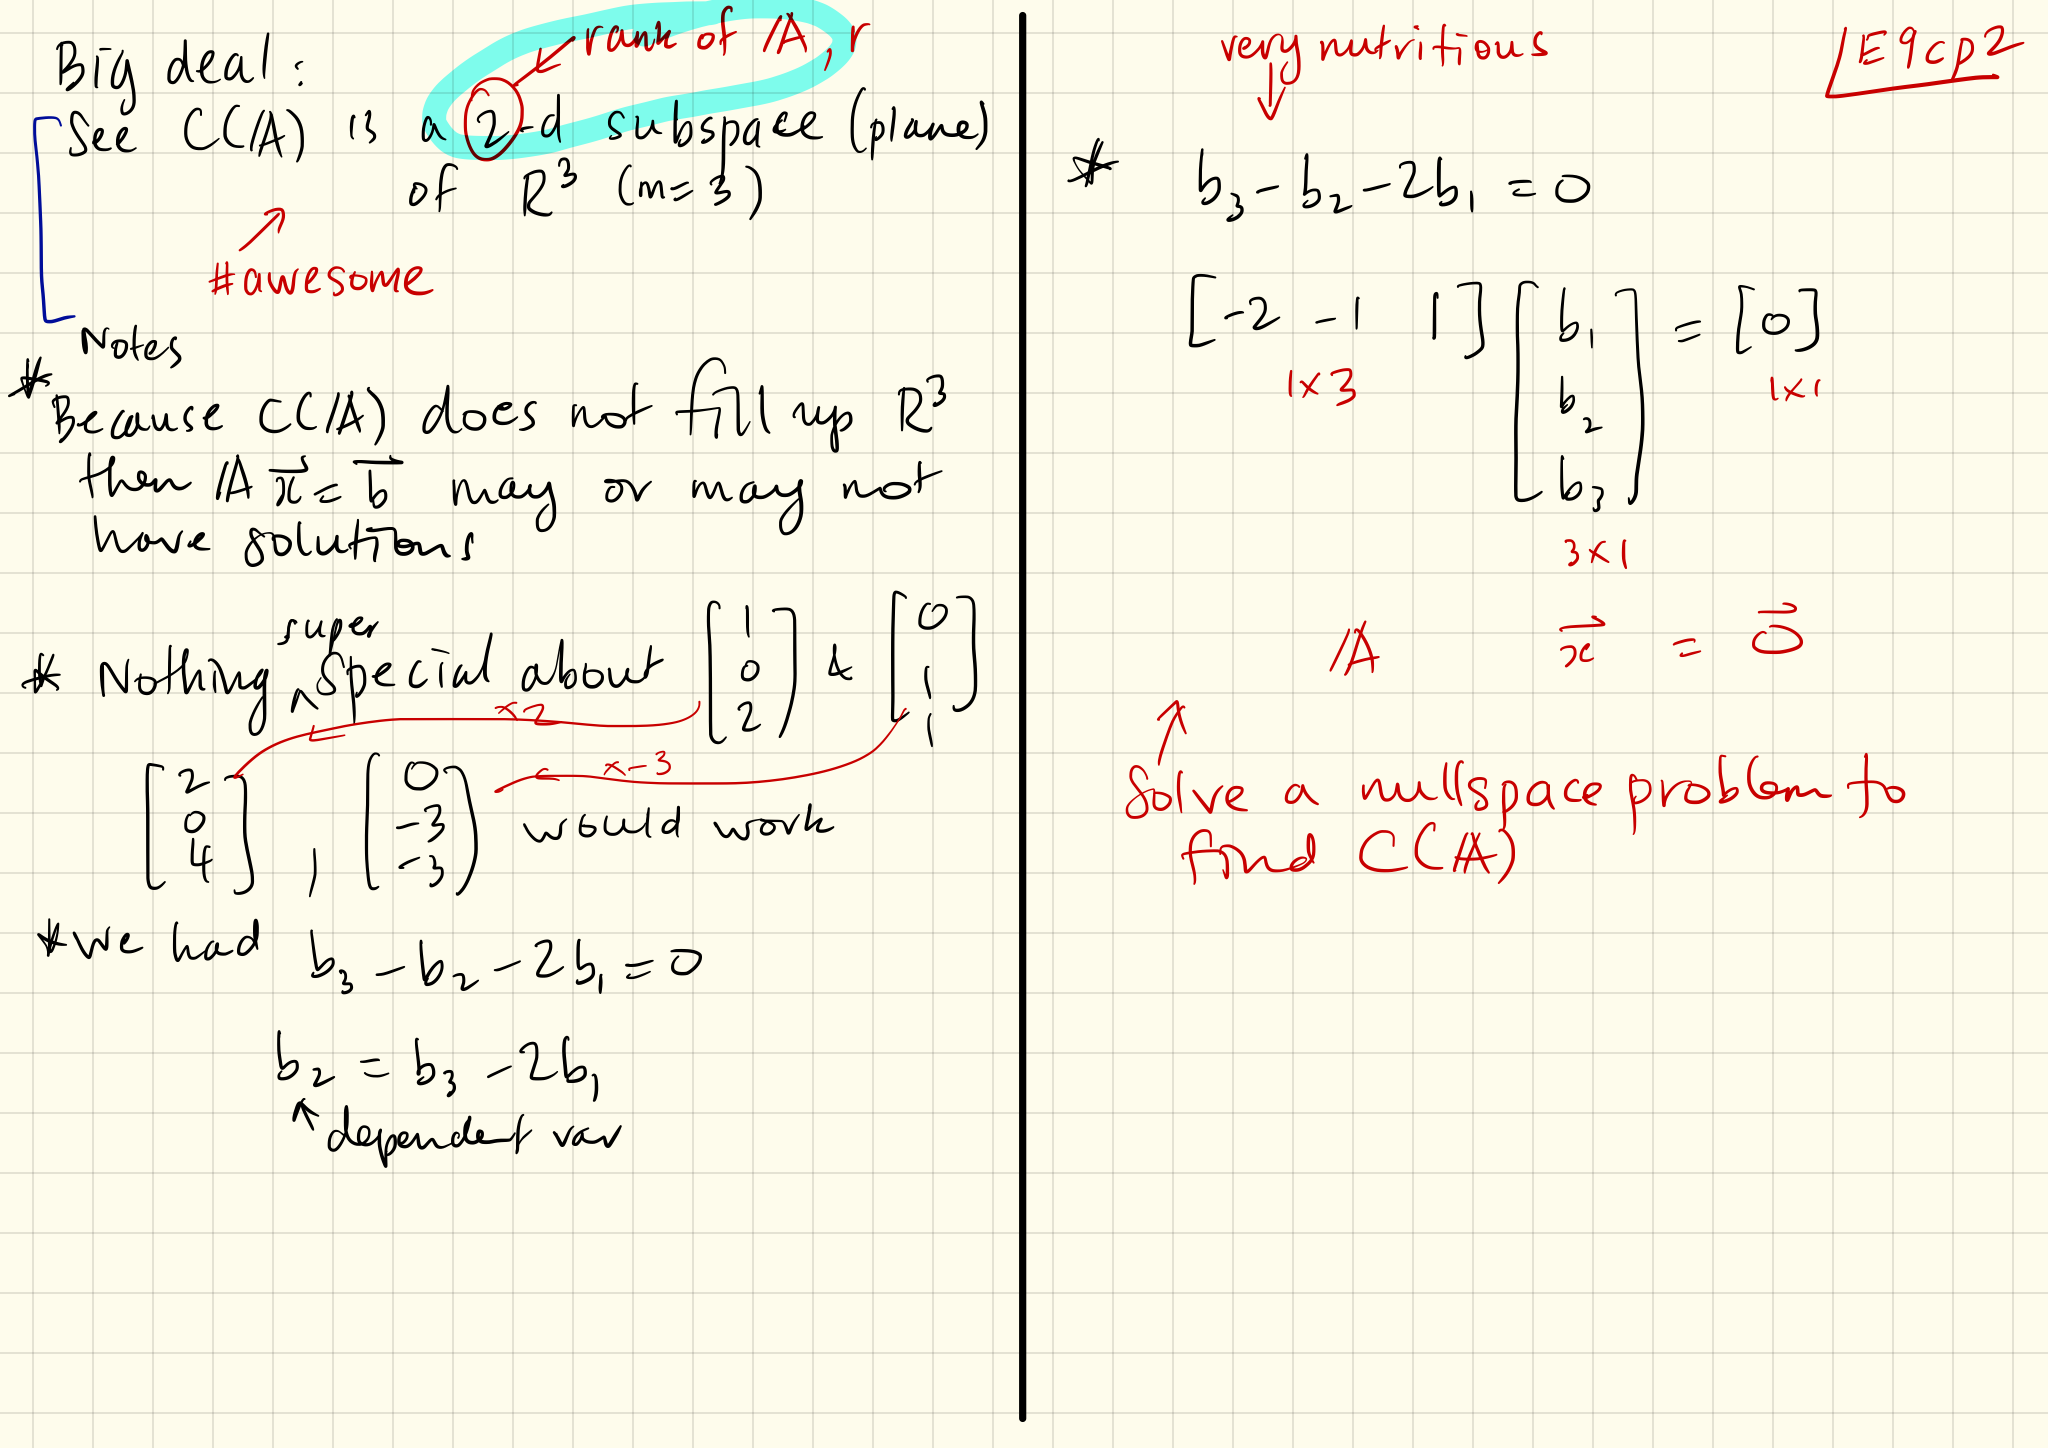 Big deal:
rank of A, r
See C(A) is a 2-d subspace (plane)
of R³ (m=3)
#awesome
Notes
* Because C(A) does not fill up R³
then A x⃗ = b⃗ may or may not
have solutions
super
* Nothing ^ special about [1 0 2] & [0 1 1]
x2
x-3
[2 0 4] , [0 -3 -3] would work
* We had b₃ - b₂ - 2b₁ = 0
b₂ = b₃ - 2b₁
dependent var
E9cp2
very nutritious
* b₃ - b₂ - 2b₁ = 0
[-2 -1 1] [b₁ b₂ b₃] = [0]
1x3
1x1
3x1
A x⃗ = 0⃗
Solve a nullspace problem to
find C(A)